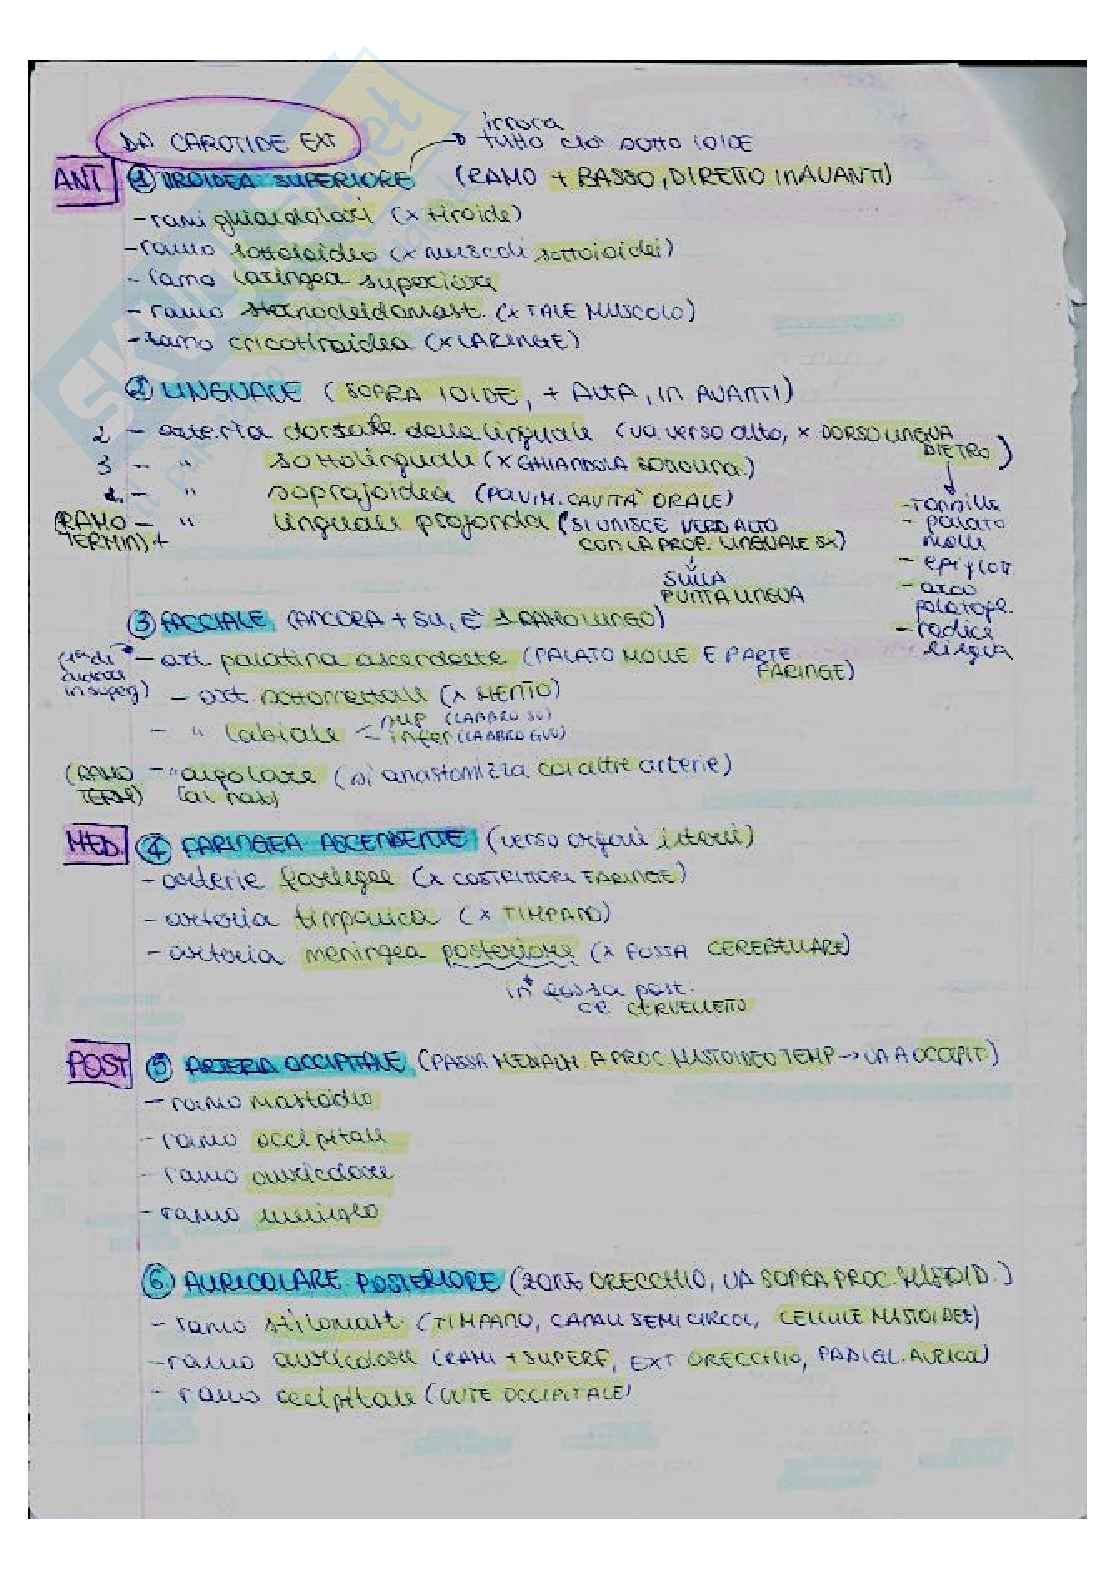 DA CAROTIDE EXT
irrora
tutto ciò sotto IOIDE
ANT ① TIROIDEA SUPERIORE (RAMO + BASSO, DIRETTO IN AVANTI)
- rami ghiandolari (x tiroide)
- ramo sottoioideo (x muscoli sottoioidei)
- ramo laringea superiore
- ramo sternocleidomast. (x TALE MUSCOLO)
- ramo cricotiroidea (x LARINGE)
② LINGUALE (SOPRA IOIDE, + ALTA, IN AVANTI)
2 - arteria dorsale della linguale (va verso alto, x DORSO LINGUA DIETRO)
3 - " sottolinguale (x GHIANDOLA)
1. - " soprajoidea (PAVIM. CAVITÀ ORALE)
(RAMO TERMIN) 4 - " linguale profonda (SI UNISCE VERSO ALTO
CON LA PROF. LINGUALE SX)
SULLA
PUNTA LINGUA
- tonsille
- palato
molle
- epiglott
- arco
palatofa.
- radice
lingua
③ FACCIALE (ANCORA + SU, È 1 RAMO LUNGO)
- art. palatina ascendente (PALATO MOLLE E PARTE
FARINGE)
in superf)
- art. sottomentale (x MENTO)
- " labiale
sup (LABBRO SU)
infer (LABBRO GIU)
(RAMO TERM) - " angolare (si anastomizza coi altre arterie)
(al naso)
MED. ④ FARINGEA ASCENDENTE (verso organi interni)
- arterie faringee (x COSTRITTORI FARINGE)
- arteria timpanica (x TIMPANO)
- arteria meningea posteriore (x FOSSA CEREBELLARE)
in fossa post.
CERVELLETTO
POST ⑤ ARTERIA OCCIPITALE (PASSA MEDIALM. A PROC. MASTOIDEO TEMP → VA A OCCIPIT)
- ramo mastoideo
- ramo occipitale
- ramo auricolare
- ramo meningeo
⑥ AURICOLARE POSTERIORE (ZONE ORECCHIO, VA SOPRA PROC. MASTOID.)
- ramo stilomast. (TIMPANO, CANALI SEMICIRCOL, CELLULE MASTOIDEE)
- ramo auricolare (RAMI + SUPERF, EXT ORECCHIO, PADIGL. AURICOL)
- ramo occipitale (CUTE OCCIPITALE)